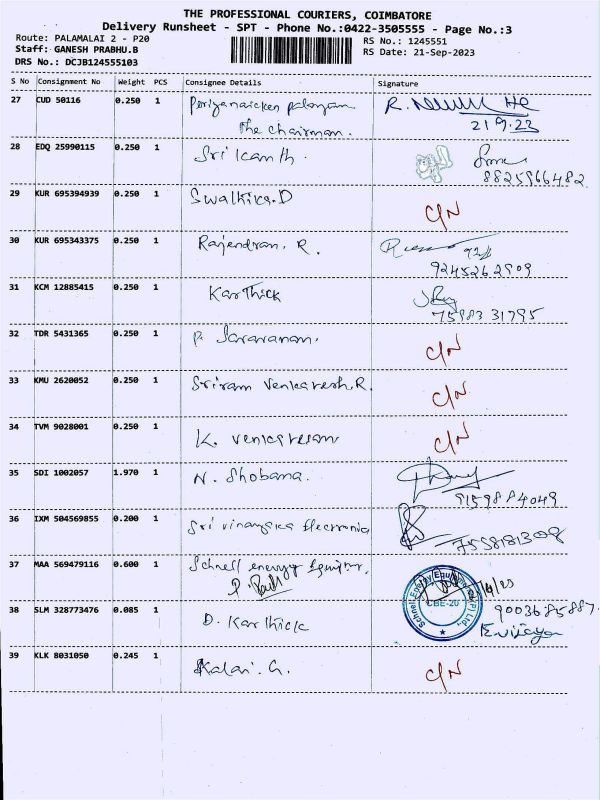 THE PROFESSIONAL COURIERS, COIMBATORE
Delivery Runsheet - SPT - Phone No.:0422-3505555 - Page No.:3
Route: PALAMALAI 2 - P20
RS No.: 1245551
Staff: GANESH PRABHU.B
RS Date: 21-Sep-2023
DRS No.: DCJB124555103
S No Consignment No Weight PCS Consignee Details Signature
27 CUD 50116 0.250 1 Periyanaicken palayam
The chairman.
21 9.23
28 EDQ 25990115 0.250 1 Sri kanth.
8825966482
29 KUR 695394939 0.250 1 Swathika.D C/N
30 KUR 695343375 0.250 1 Rajendran. R.
9245262909
31 KCM 12885415 0.250 1 Karthick
75983 31795
32 TDR 5431365 0.250 1 P. Saravanan. C/N
33 KMU 2620052 0.250 1 Sriram Venkatesh.R. C/N
34 TVM 9028001 0.250 1 K. Venkatesan C/N
35 SDI 1002057 1.970 1 N. Shobana.
36 IXM 504569855 0.200 1 Sri vinayaka Electronics
7558181308
37 MAA 569479116 0.600 1 Schnell energy Equip
Schnell Energy Equipments (P) Ltd.,
CBE-20
38 SLM 328773476 0.085 1 D. Karthick
9003685887.
E.vijaya
39 KLK 8031050 0.245 1 Kalai. G. C/N